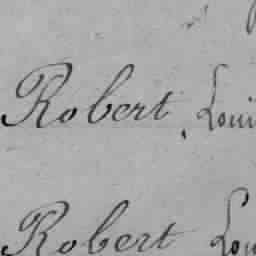 Robert, Loui
Robert Lou